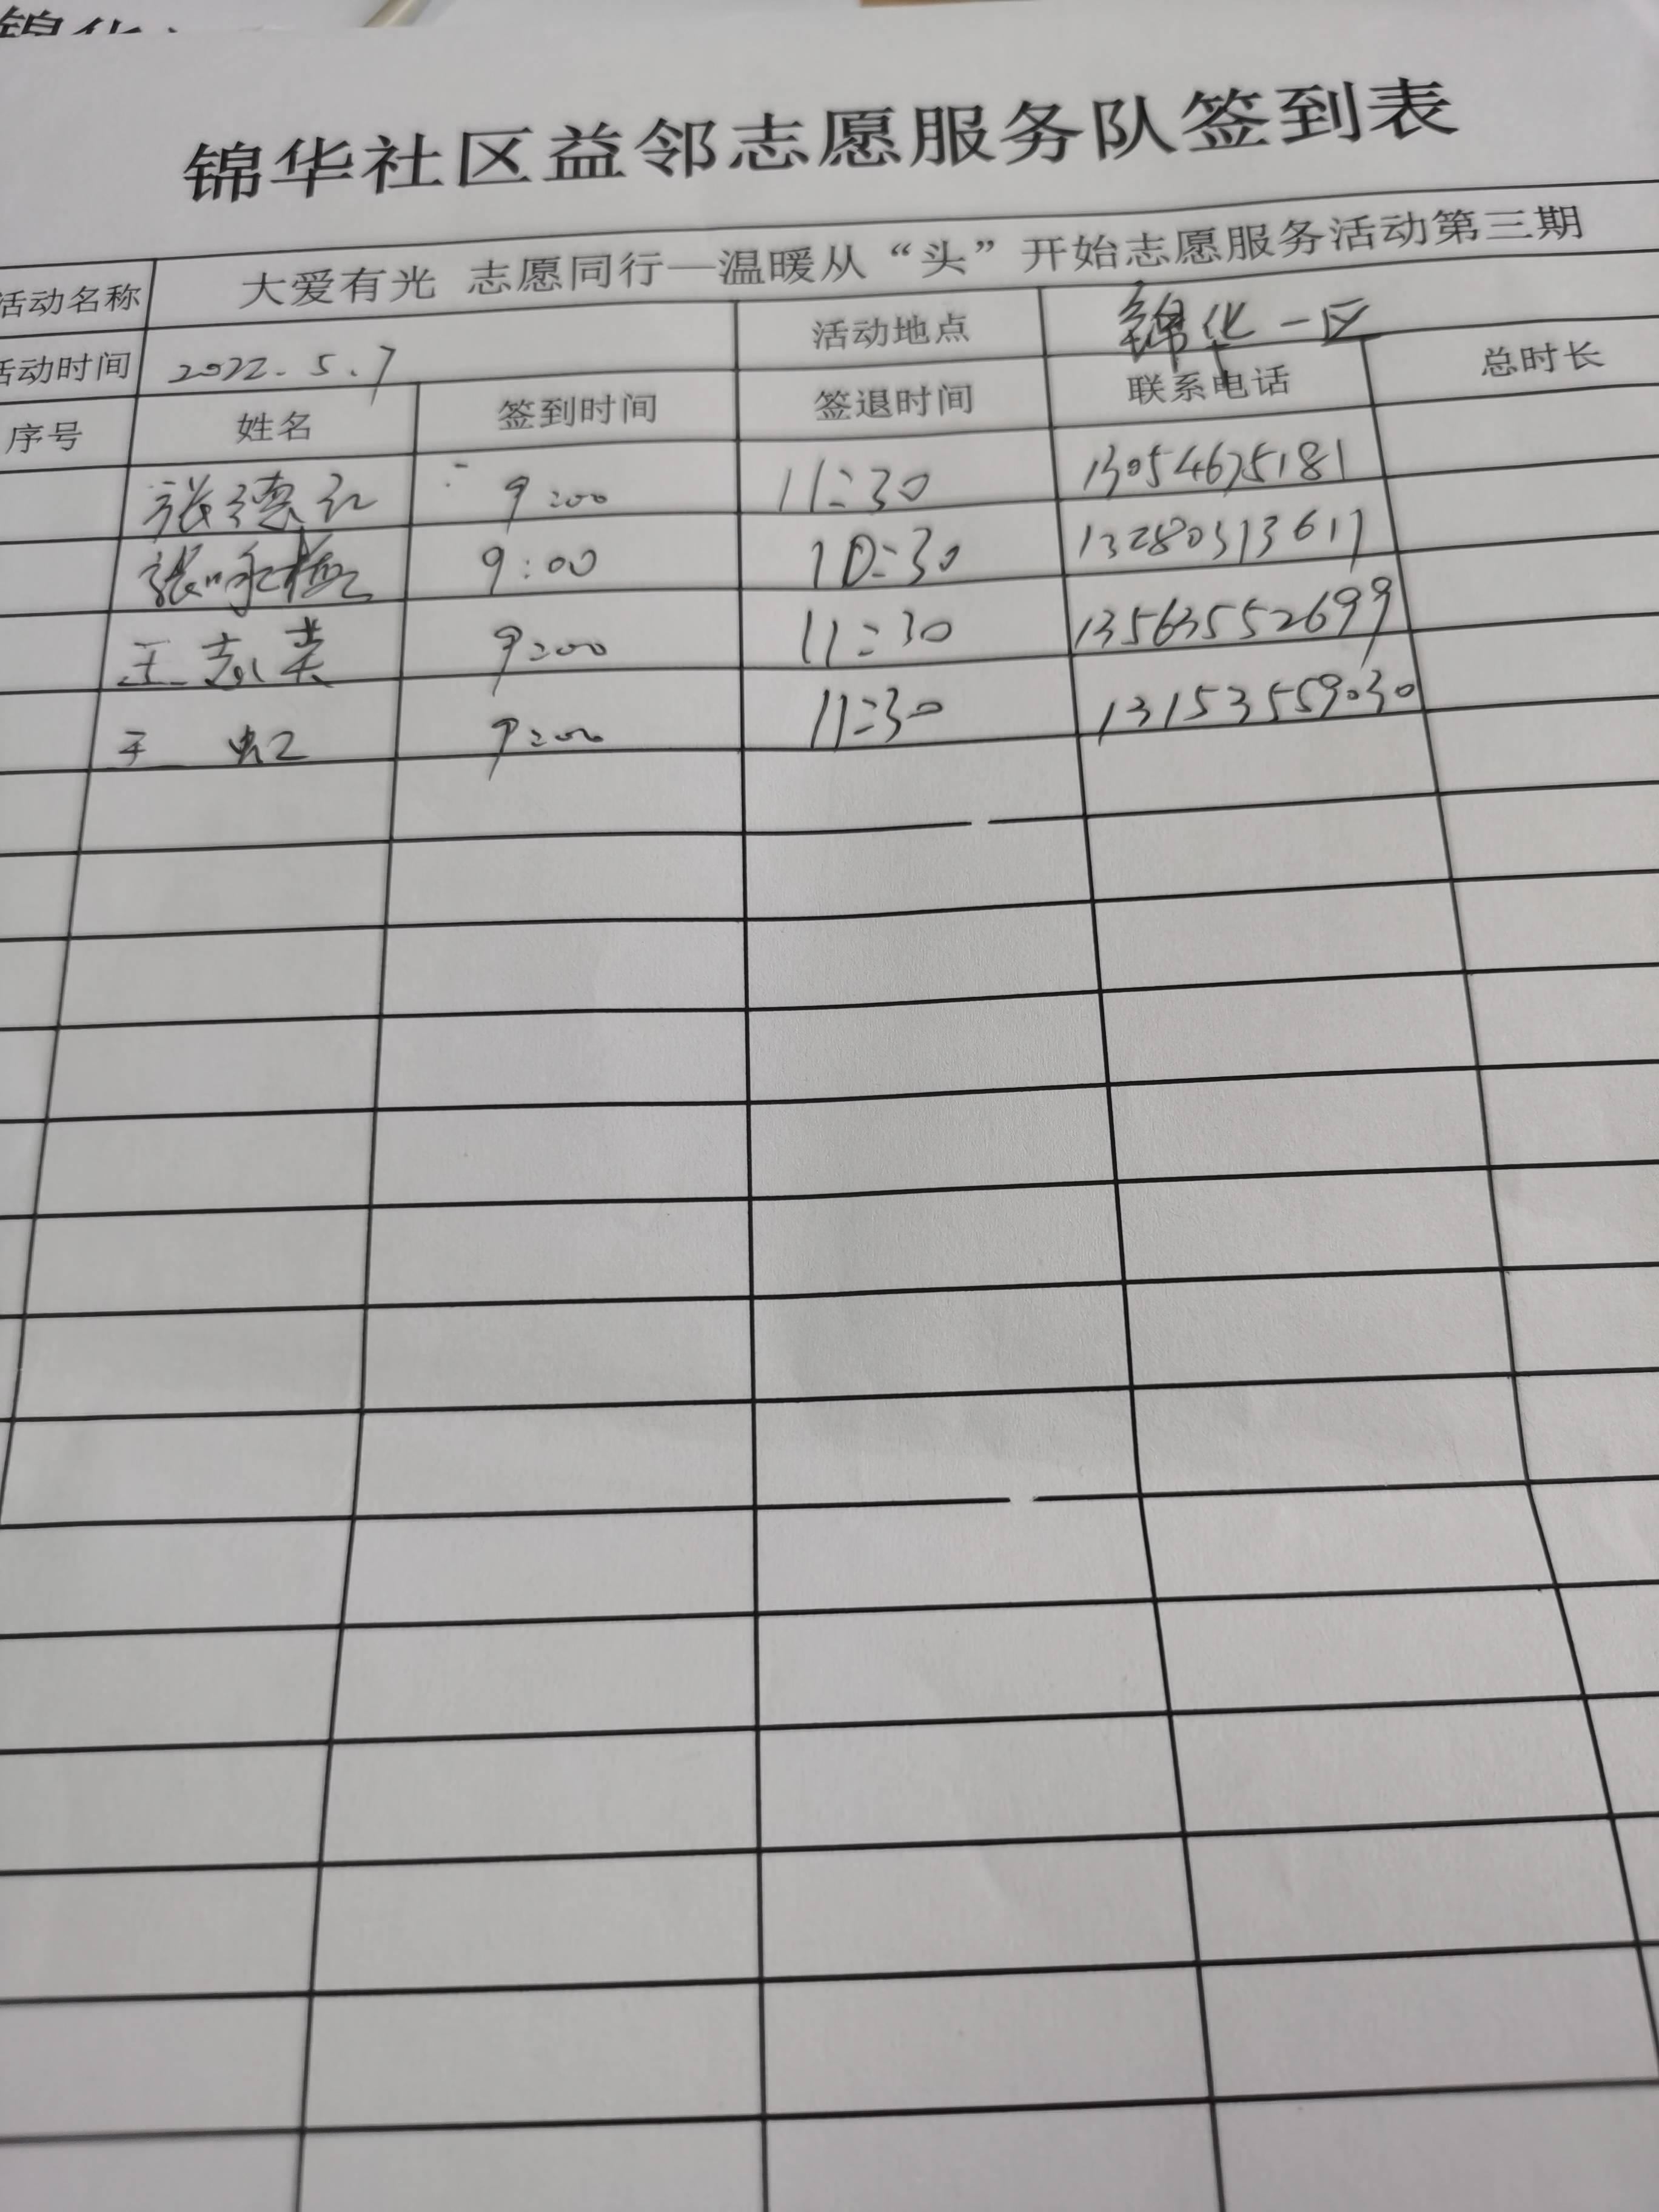 锦华社区益邻志愿服务队签到表
活动名称 大爱有光 志愿同行—温暖从“头”开始志愿服务活动第三期
活动时间 2022.5.7 活动地点 锦华一区
序号 姓名 签到时间 签退时间 联系电话 总时长
张德红 9:00 11:30 13054675181
张 9:00 10:30 13280313617
王志荣 9:00 11:30 13563552699
王虹 9:00 11:30 13153559030